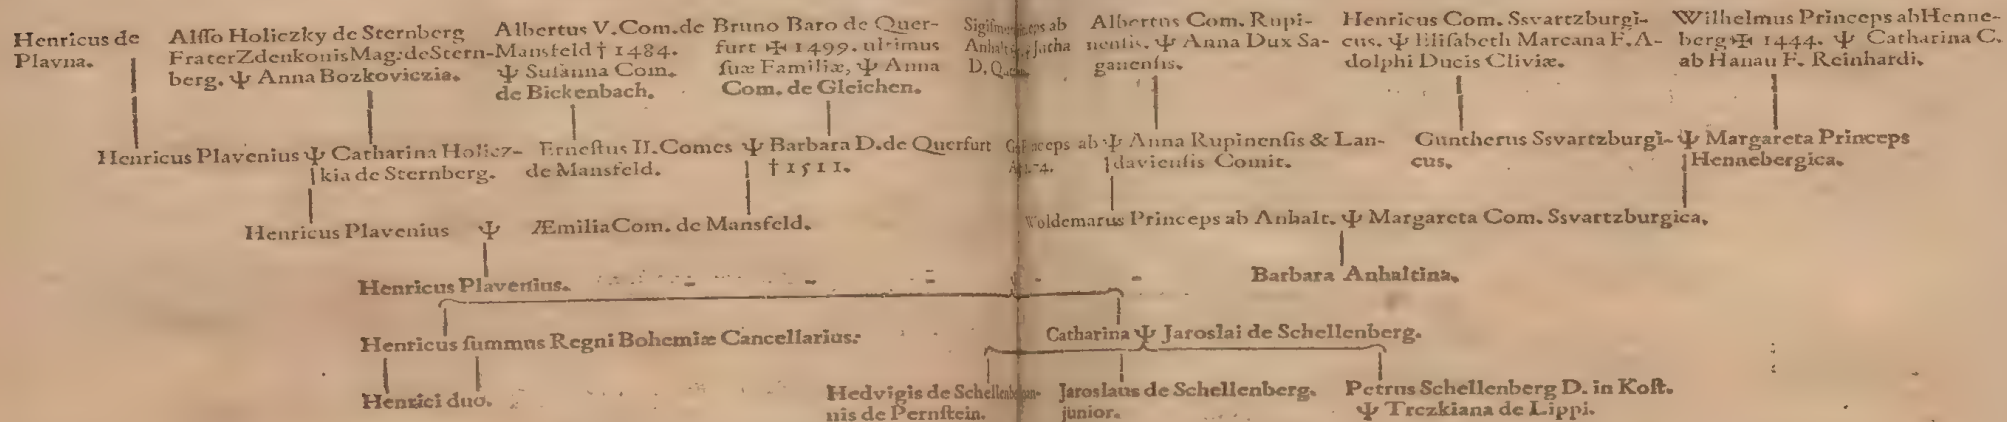 Henricus de
Plavna.
Alſſo Holiczky de Sternberg
Frater Zdenkonis Mag: de Stern-
berg. Ψ Anna Bozkoviczia.
Albertus V. Com. de
Mansfeld † 1484.
Ψ Suſanna Com.
de Bickenbach.
Bruno Baro de Quer-
furt ✠ 1499. ultimus
ſuæ Familiæ, Ψ Anna
Com. de Gleichen.
ab
Anhalt
D.
Albertus Com. Rupi-
nenſis. Ψ Anna Dux Sa-
ganenſis.
Henricus Com. Ssvartzburgi-
cus. Ψ Eliſabeth Marcana F. A-
dolphi Ducis Cliviæ.
Wilhelmus Princeps ab Henne-
berg ✠ 1444. Ψ Catharina C.
ab Hanau F. Reinhardi.
Henricus Plavenius Ψ Catharina Holicz-
kia de Sternberg.
Erneſtus II. Comes
de Mansfeld.
Ψ Barbara D. de Querfurt
† 1511.
ab Ψ Anna Rupinenſis & Lan-
davienſis Comit.
Guntherus Ssvartzburgi-
cus.
Ψ Margareta Princeps
Hennebergica.
Henricus Plavenius Ψ Æmilia Com. de Mansfeld.
Woldemarus Princeps ab Anhalt. Ψ Margareta Com. Ssvartzburgica.
Henricus Plavenius.
Barbara Anhaltina.
Henricus ſummus Regni Bohemiæ Cancellarius.
Catharina Ψ Jaroslai de Schellenberg.
Henrici duo.
Hedvigis de
nis de Pernſtein.
Jaroslaus de Schellenberg.
junior.
Petrus Schellenberg D. in Koſt.
Ψ Trczkiana de Lippi.